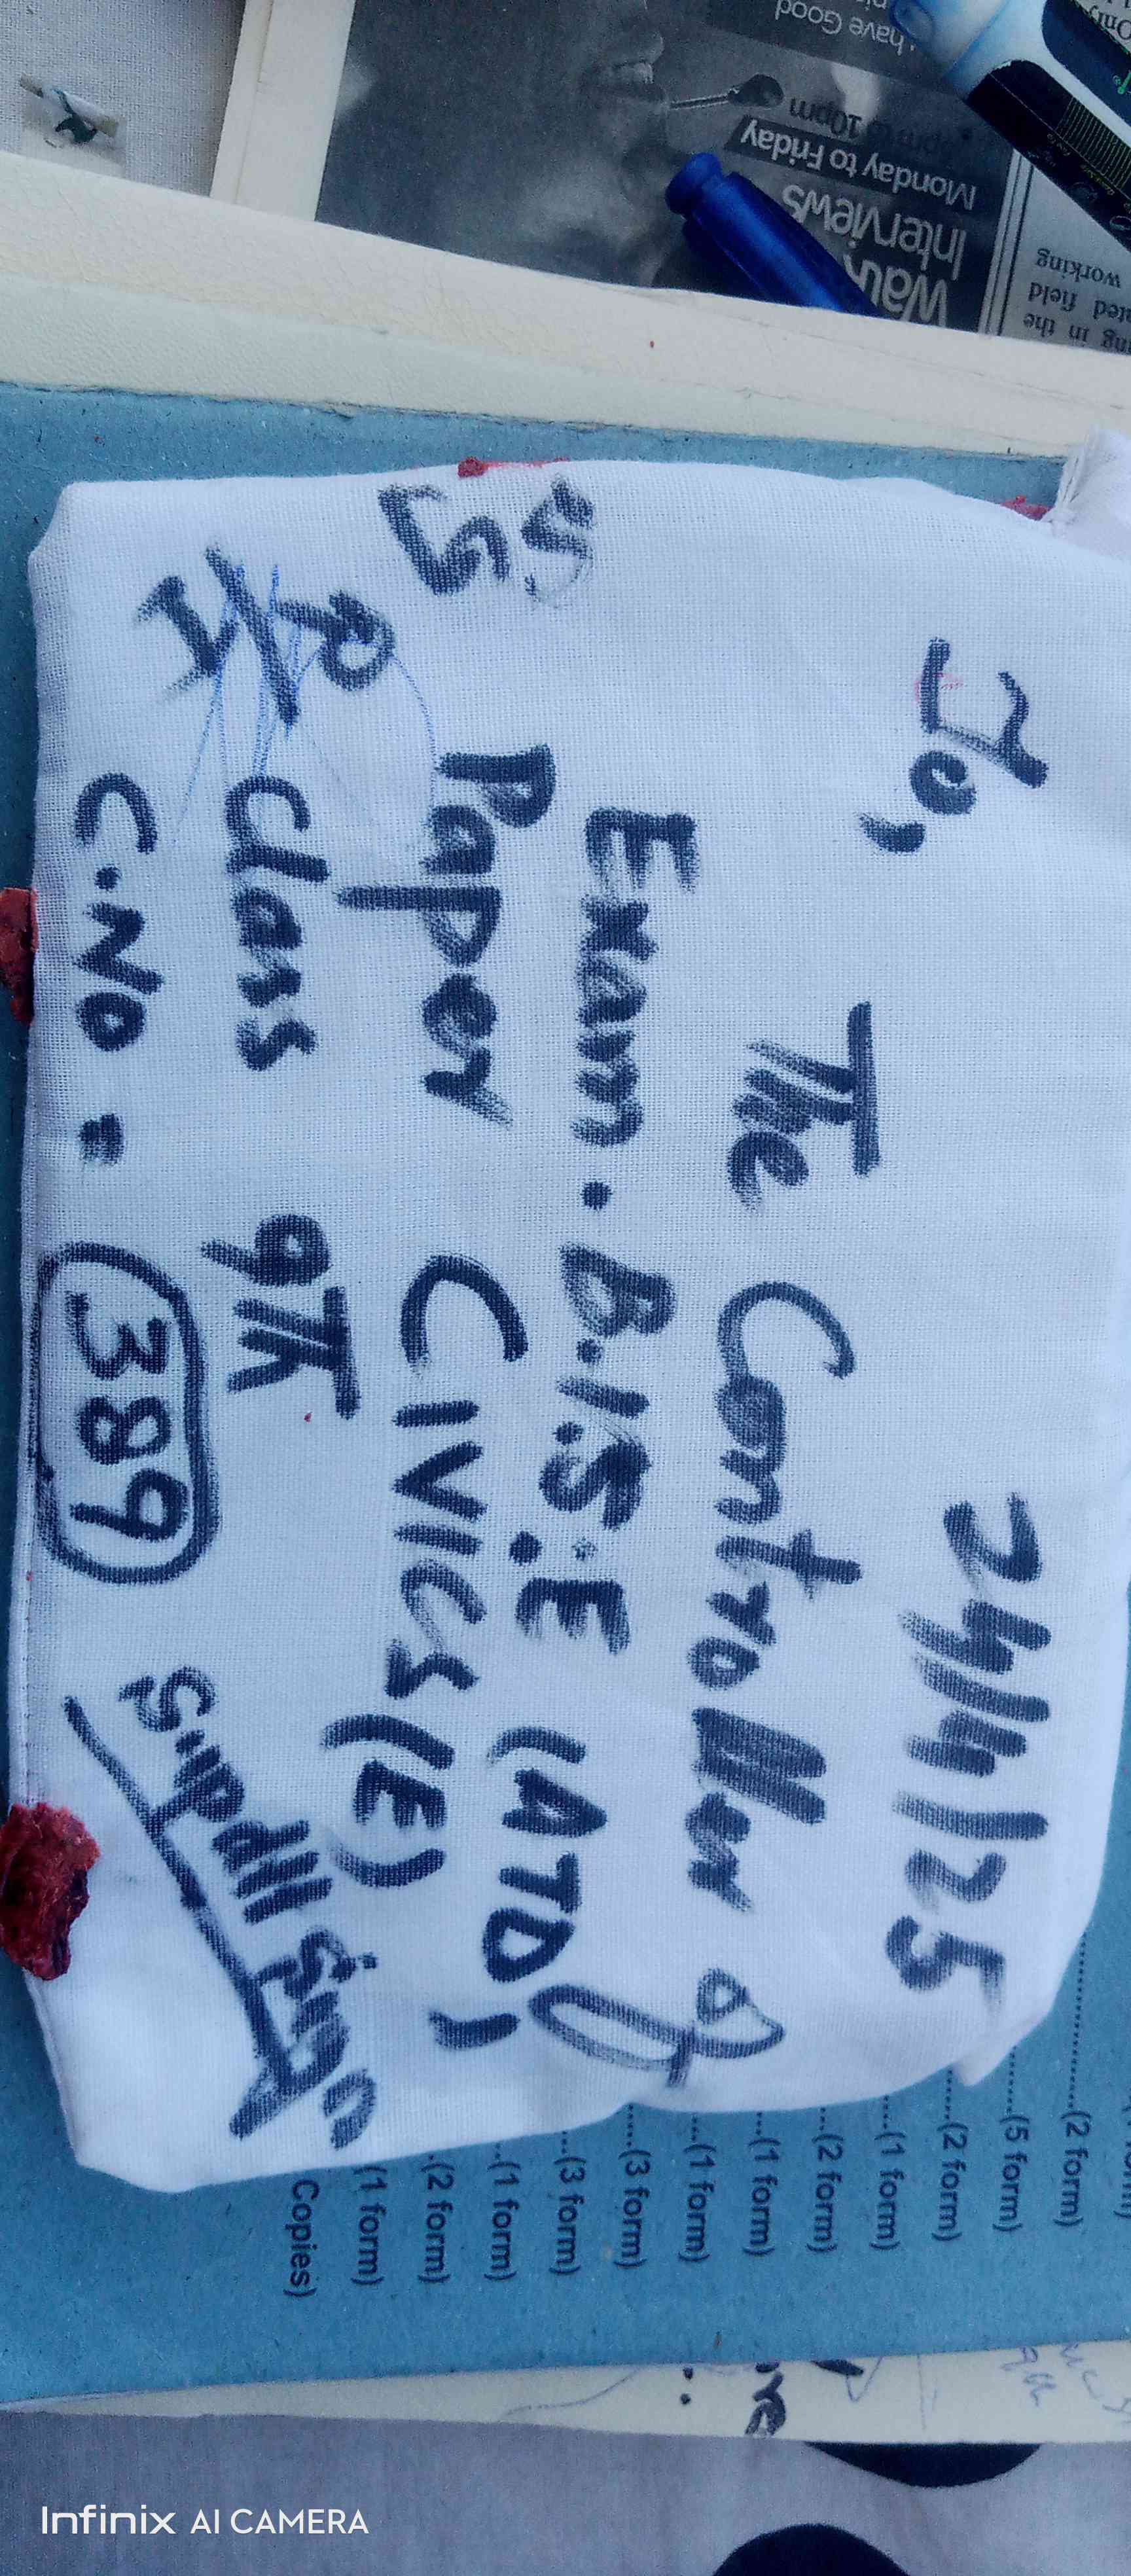 24/4/25
To,
The Controller of
Exam. B.I.S.E (ATD)
Paper CIVICS (E)
Class 9Th
C.No = 389
R/I
have Good
Walk
Interviews
Monday to Friday
to 10pm
ing in the
field
working
(2 form)
(5 form)
(2 form)
(1 form)
(2 form)
(1 form)
(1 form)
(3 form)
(3 form)
(1 form)
(2 form)
(1 form)
Copies)
Infinix AI CAMERA